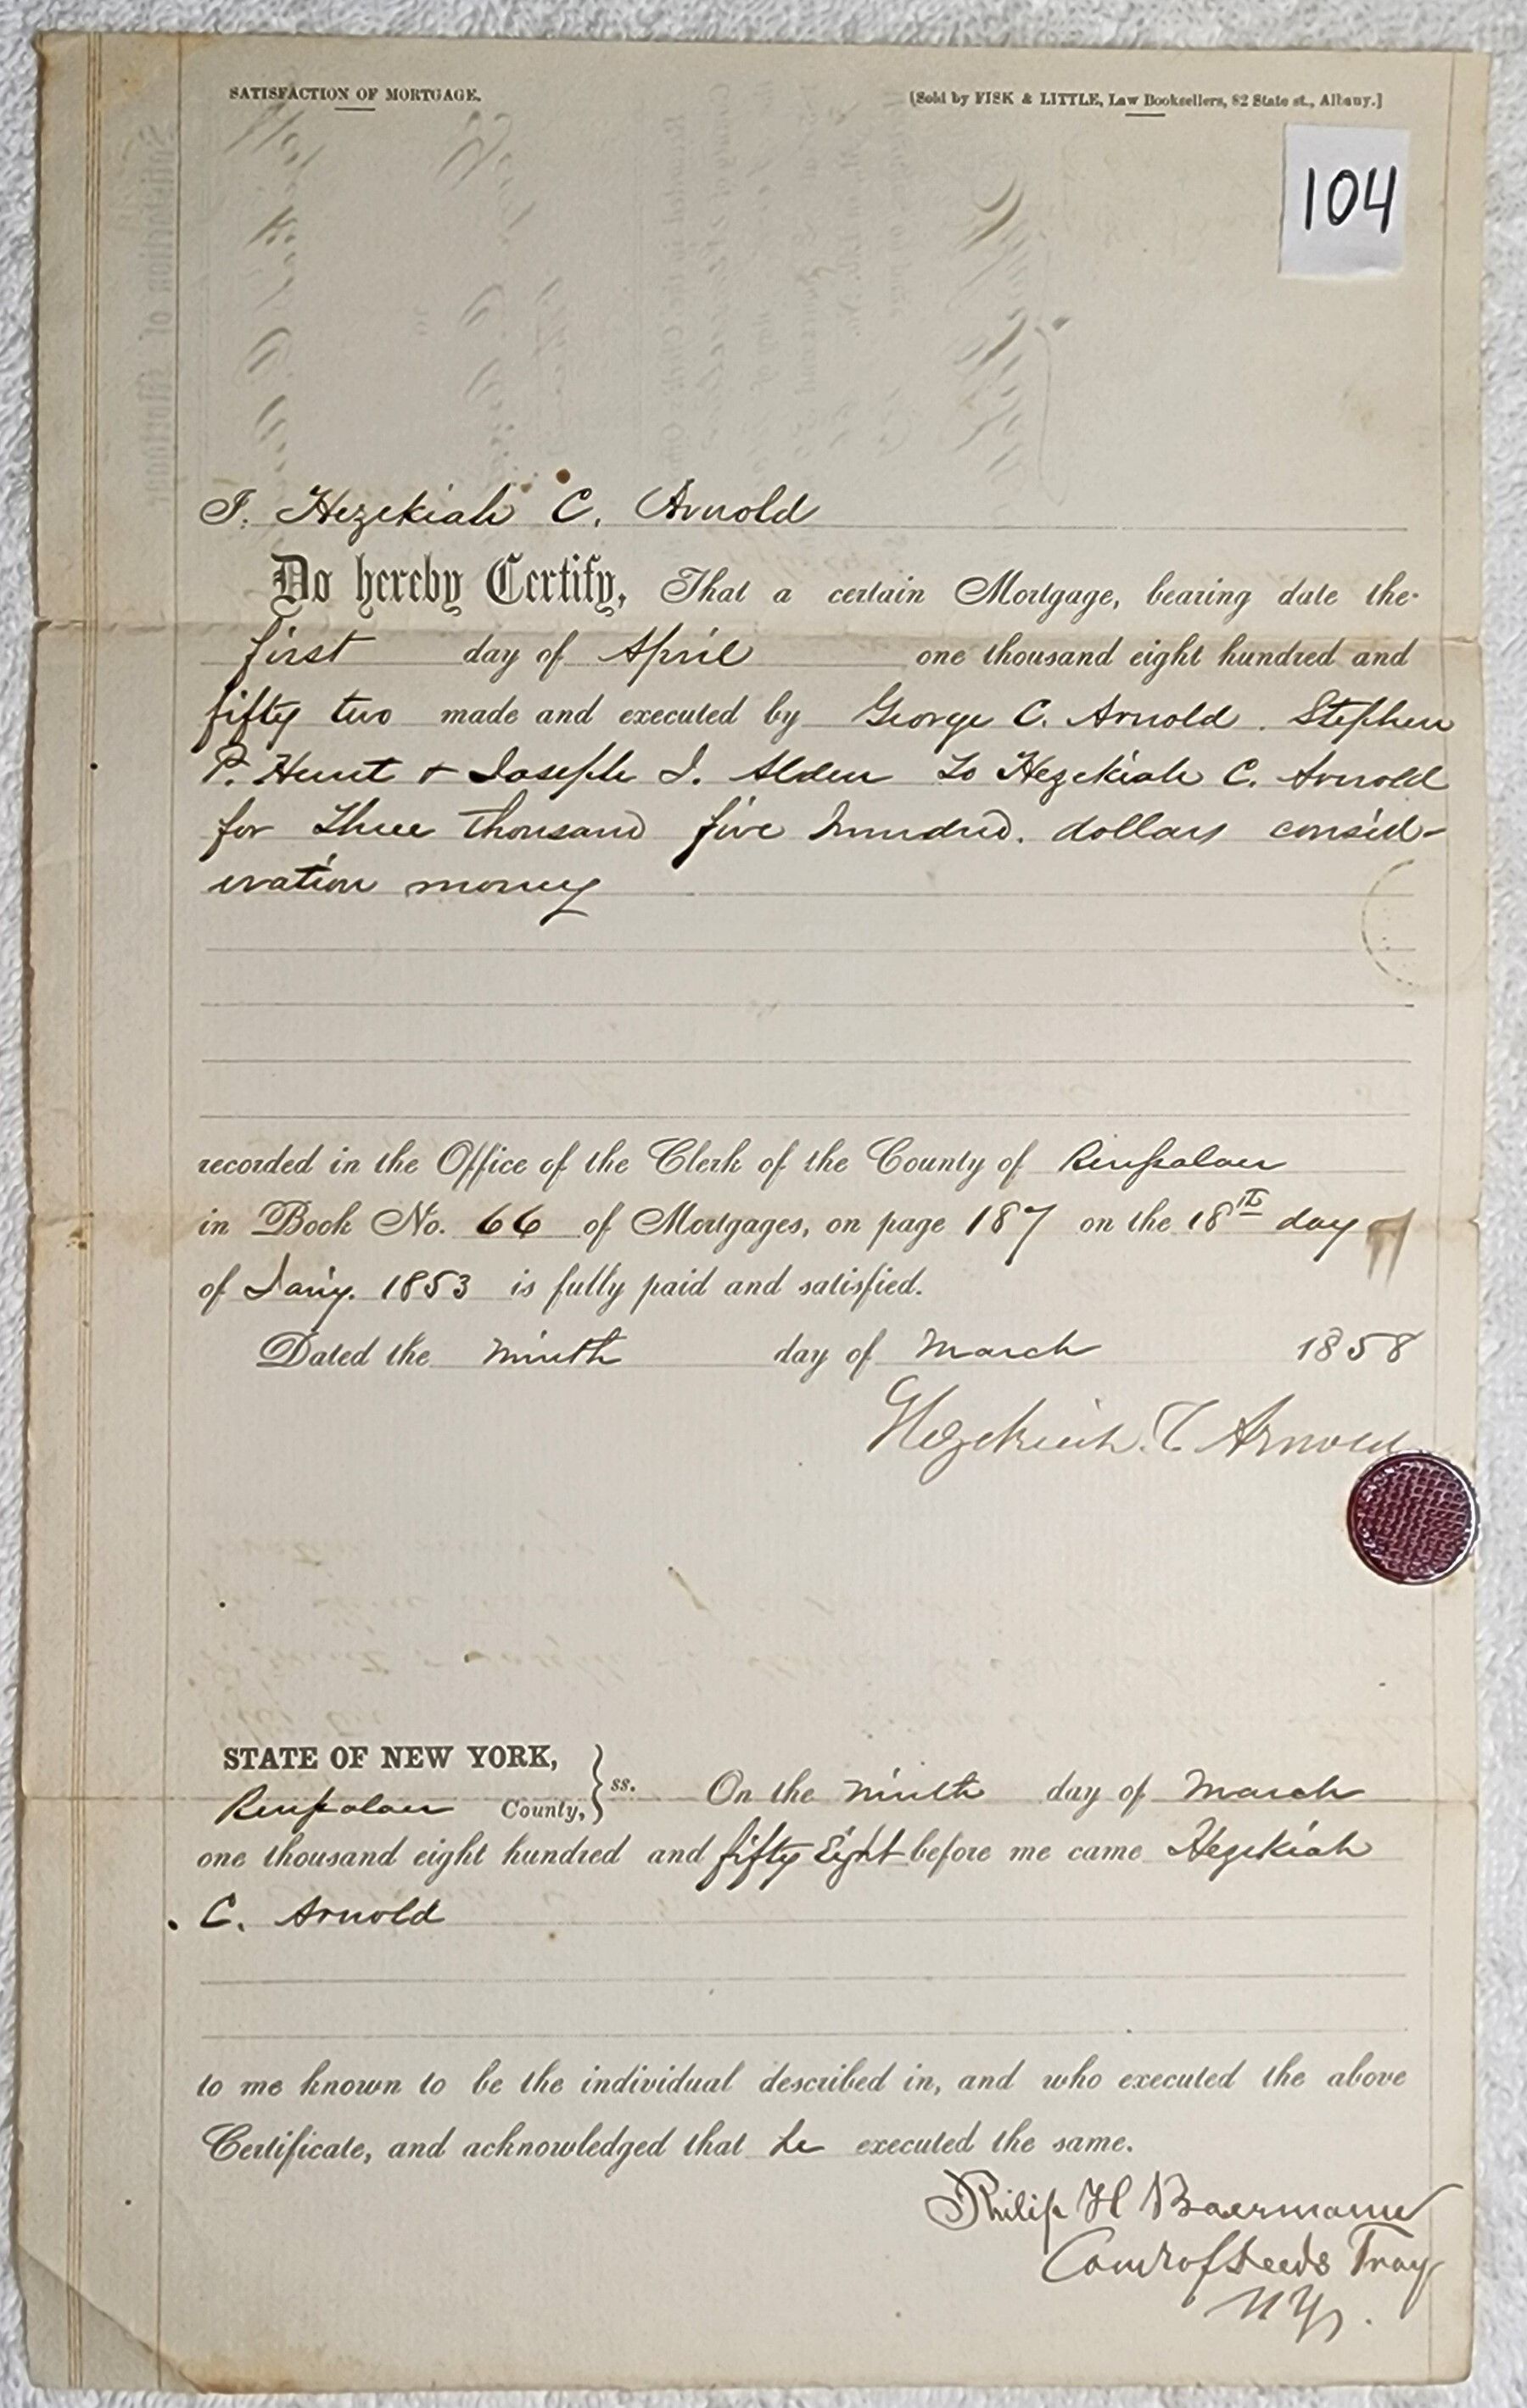 SATISFACTION OF MORTGAGE.
[Sold by FISK & LITTLE, Law Booksellers, 82 State st., Albany.]
104
I. Hezekiah C. Arnold
Do hereby Certify, That a certain Mortgage, bearing date the
first day of April one thousand eight hundred and
fifty two made and executed by George C. Arnold. Stephen
P. Hunt & Joseph J. Alden to Hezekiah C. Arnold
for Three thousand five hundred. dollars consid-
eration money
recorded in the Office of the Clerk of the County of Rensselaer
in Book No. 66 of Mortgages, on page 187 on the 18th day
of Jany. 1853 is fully paid and satisfied.
Dated the ninth day of March 1858
Hezekiah. C Arnold
STATE OF NEW YORK,
Rensselaer County, } ss. On the ninth day of March
one thousand eight hundred and fifty Eight before me came Hezekiah
C. Arnold
to me known to be the individual described in, and who executed the above
Certificate, and acknowledged that he executed the same.
Philip H Baermann
Comr of deeds Troy
N Y.